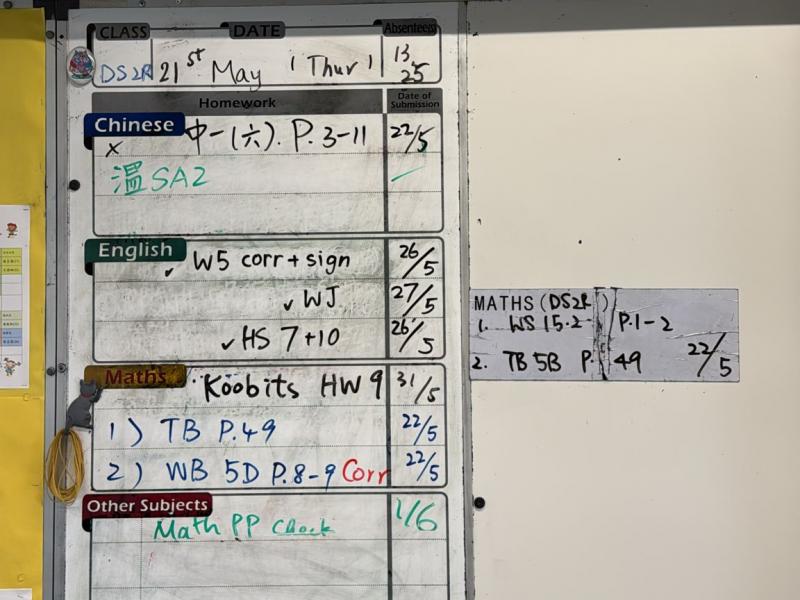 CLASS DATE Absentees
DS2R 21st May (Thur) 13
25
Homework Date of Submission
Chinese 中一(六). P.3-11 22/5
x
溫 SA2
English ✓ W5 corr + sign 26/5
✓ WJ 27/5
✓ HS 7+10 26/5
Maths Koobits HW 9 31/5
1) TB P.49 22/5
2) WB 5D P.8-9 Corr 22/5
Other Subjects
Math PP Check 1/6
MATHS (DS2R)
1. WS 15.2 P.1-2
2. TB 5B P. 49 22/5